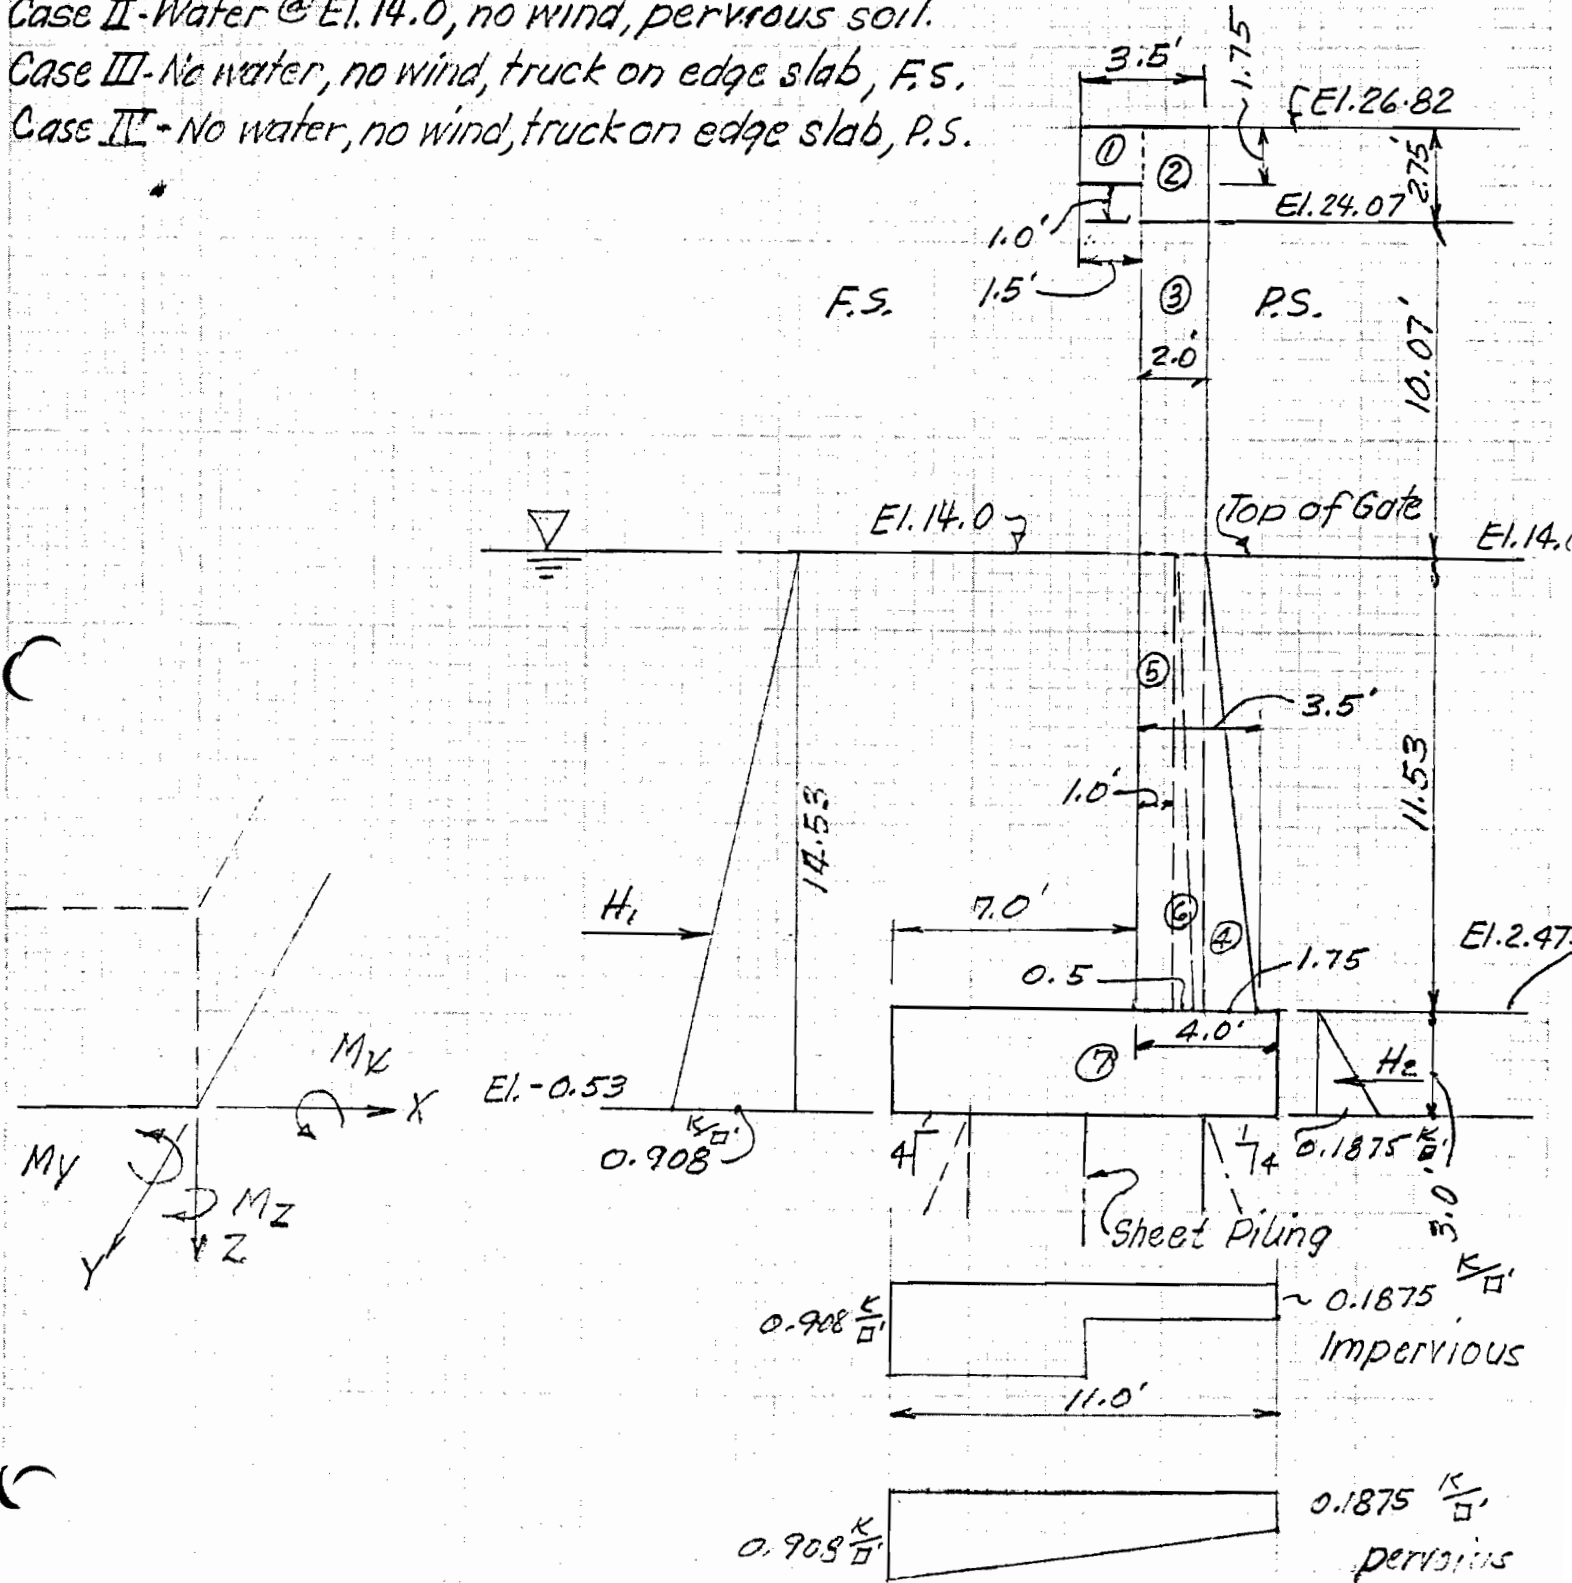 Case II - Water @ El. 14.0, no wind, pervious soil.
Case III - No water, no wind, truck on edge slab, F.S.
Case IV - No water, no wind, truck on edge slab, P.S.
3.5'
1.75
El. 26.82
①
②
2.75'
1.0'
El. 24.07
1.5'
F.S.
③
P.S.
2.0'
10.07'
El. 14.0
Top of Gate
El. 14.
⑤
3.5'
1.0'
14.53
11.53
H₁
7.0'
⑥
④
El. 2.47
0.5
1.75
4.0'
⑦
H₂
Mx
X
El. -0.53
0.908 K/□'
4
1
1
4
0.1875 K/□'
3.0'
My
Mz
Z
Y
Sheet Piling
0.908 K/□'
0.1875 K/□'
Impervious
11.0'
0.908 K/□'
0.1875 K/□'
pervoius